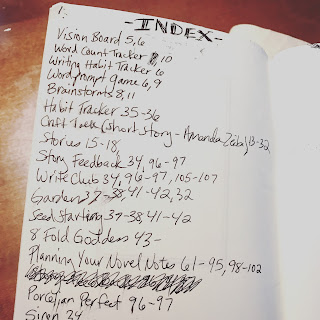 1.
-INDEX-
Vision Board 5,6
Word Count Tracker 10
Writing Habit Tracker 6
Word Prompt game 6,9
Brainstorms 8,11
Habit Tracker 35-36
Craft Talk (Short Story - Amanda 13-32
Stories 15-18,
Story Feedback 34, 96-97
Write Club 34, 96-97, 105-107
Garden 37-38, 41-42, 32
Seed Starting 37-38, 41-42
8 Fold Goddess 43-
Planning Your Novel Notes 61-95, 98-102
Perfect 96-97
Siren 24